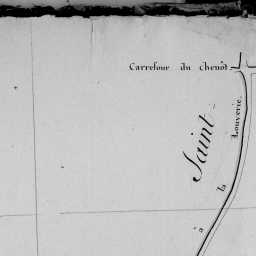 Carrefour du Chenôt
Saint
à la Louverie.